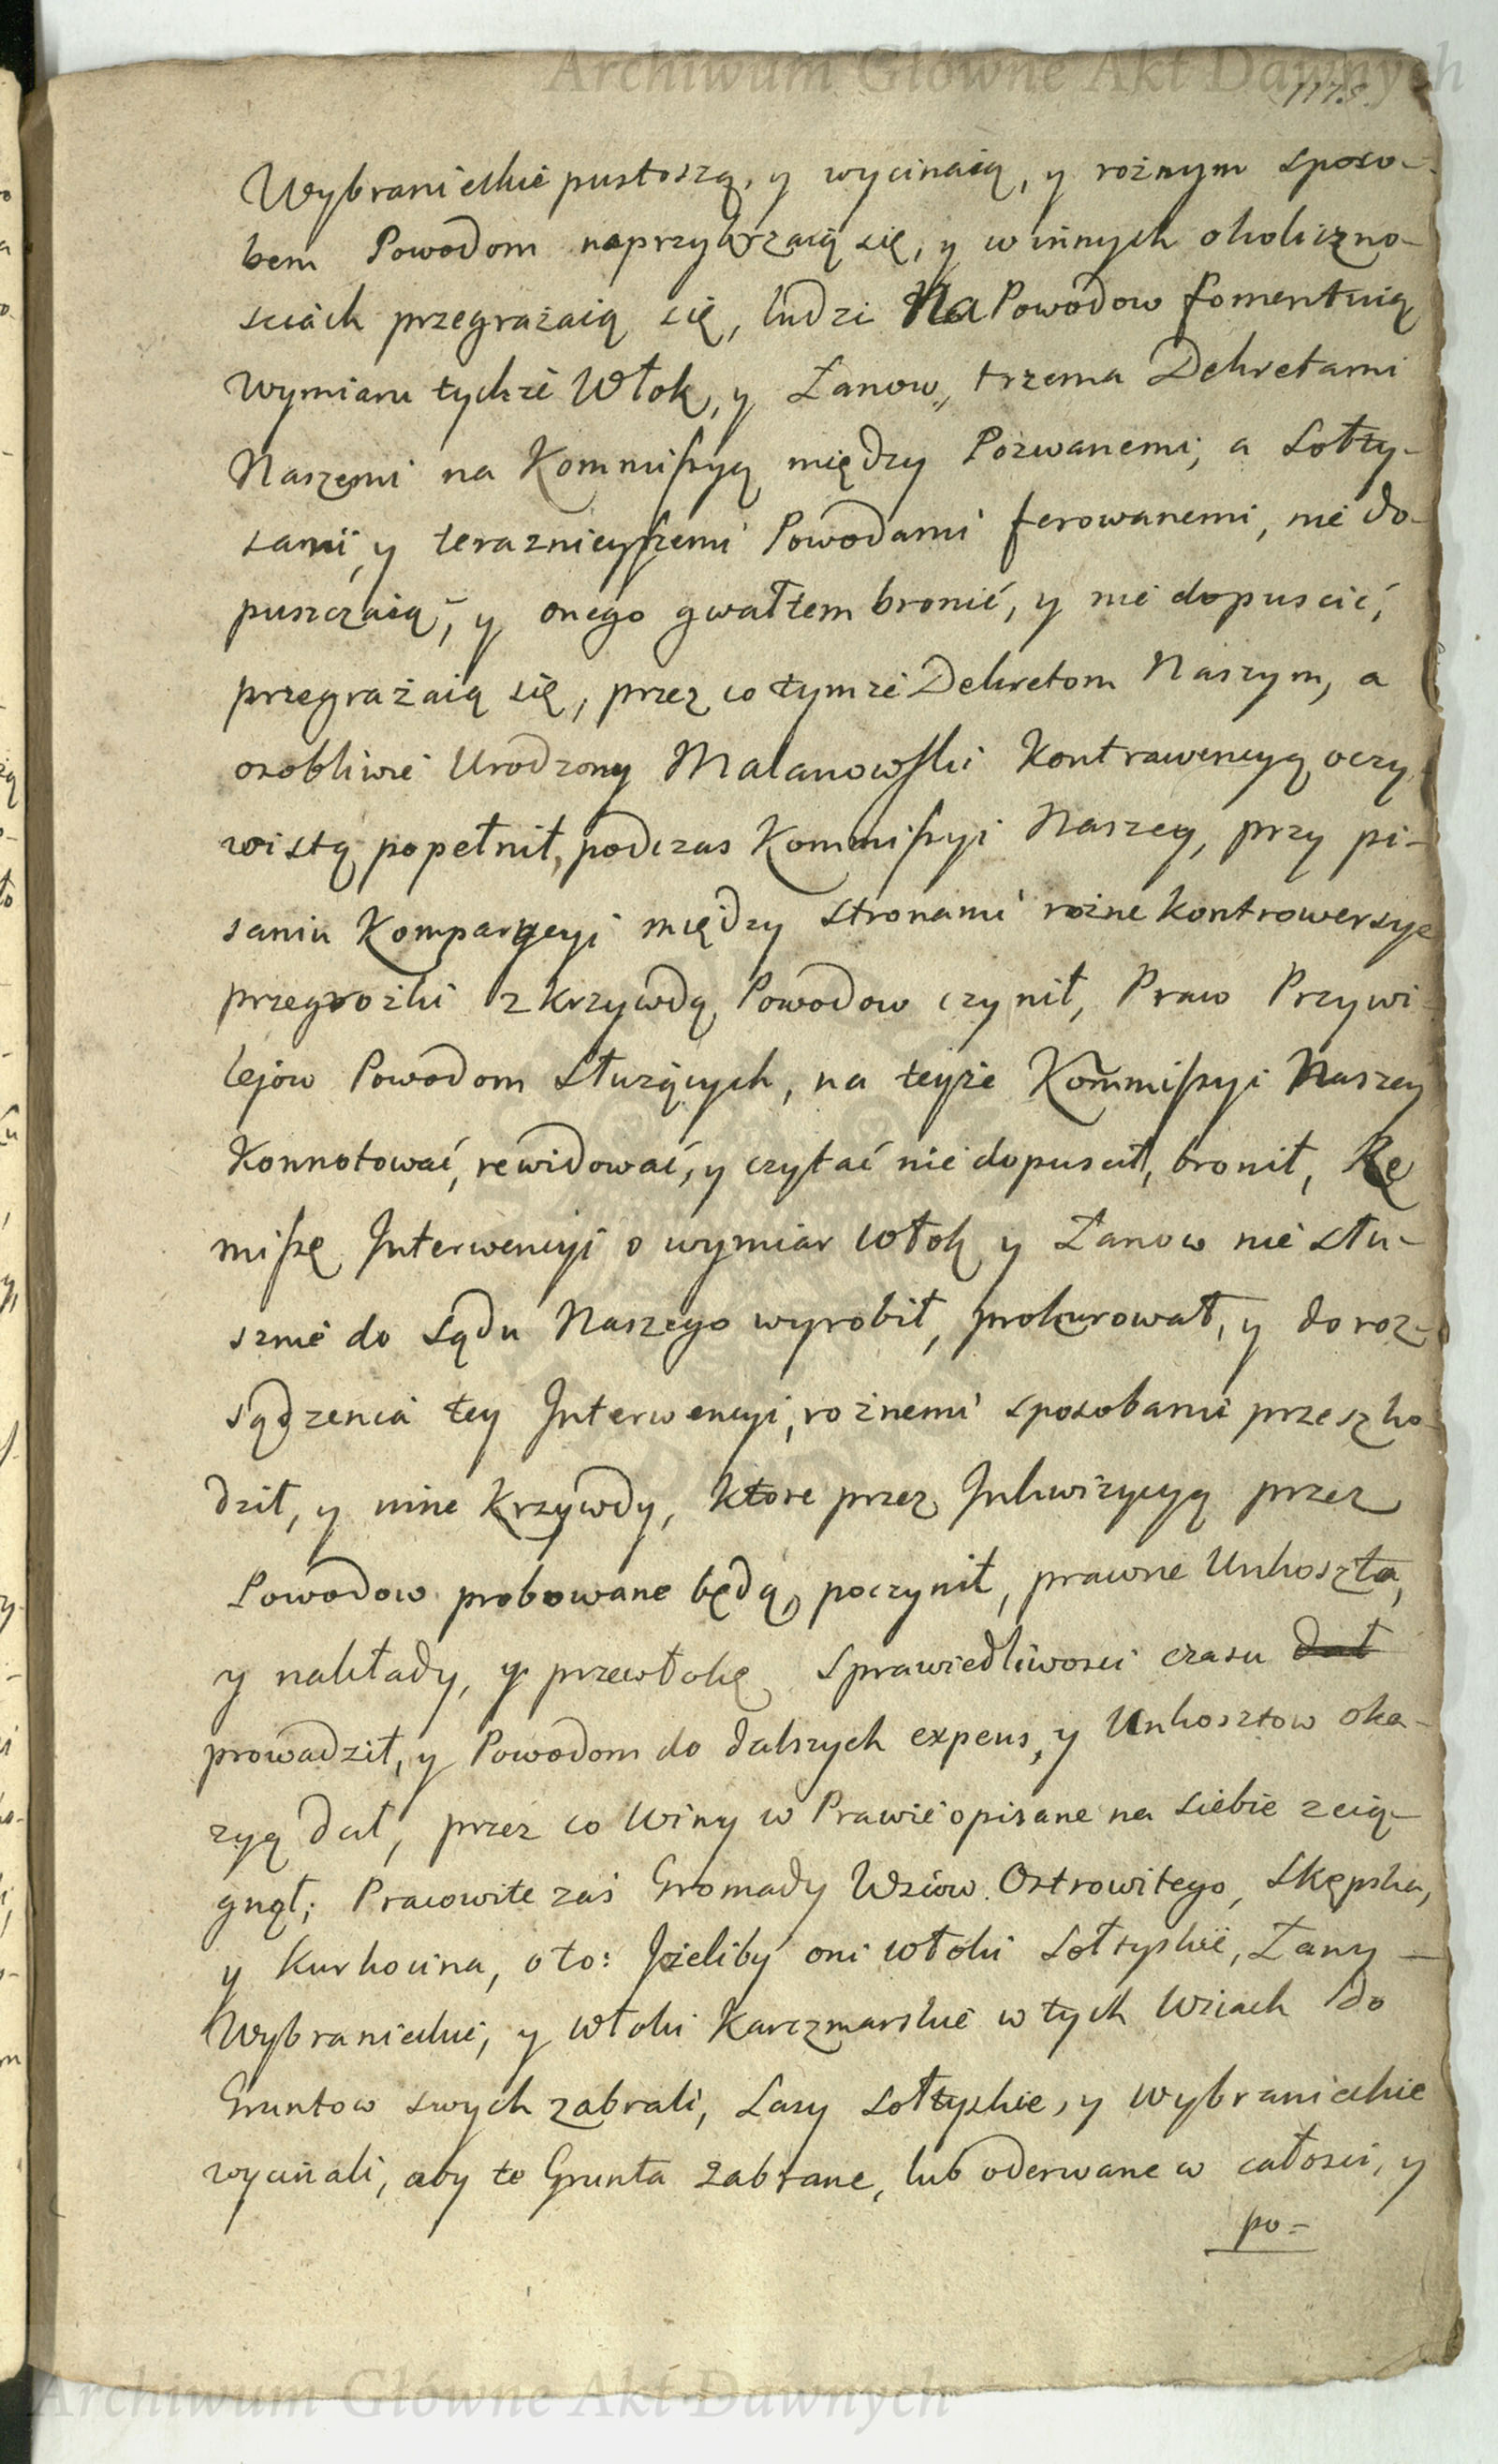 Archiwum Główne Akt Dawnych
117.
Wybranieckie pustoszą, y wycinaią, y rożnym sposo-
bem Powodom naprzykrzaią się, y w innych okoliczno-
sciach przegrażaią się, ludzi Na Powodow fomentuią
Wymiaru tychże Włok, y Łanow, trzema Dekretami
Naszemi na Kommissyą między Pozwanemi, a Sołty-
sami, y teraznieyszemi Powodami ferowanemi, nie do-
puszczaią, y onego gwałtem bronić, y nie dopuscić,
przegrażaią się, przez co tymże Dekretom Naszym, a
osobliwie Urodzony Malanowski Kontrawencyą oczy
wistą popełnił, podczas Kommissyi Naszey, przy pi-
saniu Komparycyi między stronami rożne kontrowersye
przegrożki z krzywdą Powodow czynił, Praw Przywi-
lejow Powodom Służących, na teyże Kommissyi Naszey
Konnotować, rewidować, y czytać nie dopuscił, bronił, Re
missę Interwencyi o wymiar Włok y Łanow nie słu-
sznie do Sądu Naszego wyrobił, prokurował, y do roz-
sądzenia tey Interwencyi, rożnemi sposobami przeszko-
dził, y inne Krzywdy, Ktore przez Inkwizycyą przez
Powodow probowane będą, poczynił, prawne Unkoszta,
y nakłady, y przewłokę Sprawiedliwosci czasu dał
prowadził, y Powodom do dalszych expens, y Unkosztow oka-
zyą dał, przez co Winy w Prawie opisane na siebie zcią-
gnął; Pracowite zaś Gromady Wsiow Ostrowitego, Skępska,
y Kurkocina, o to: Jeżeliby oni włoki Sołtyskie, Łany
Wybranieckie, y włoki Karczmarskie w tych Wsiach do
Gruntow swych zabrali, Lasy Sołtyskie, y Wybranieckie
wycinali, aby te Grunta zabrane, lub oderwane w całosci, y
po-
Archiwum Główne Akt Dawnych